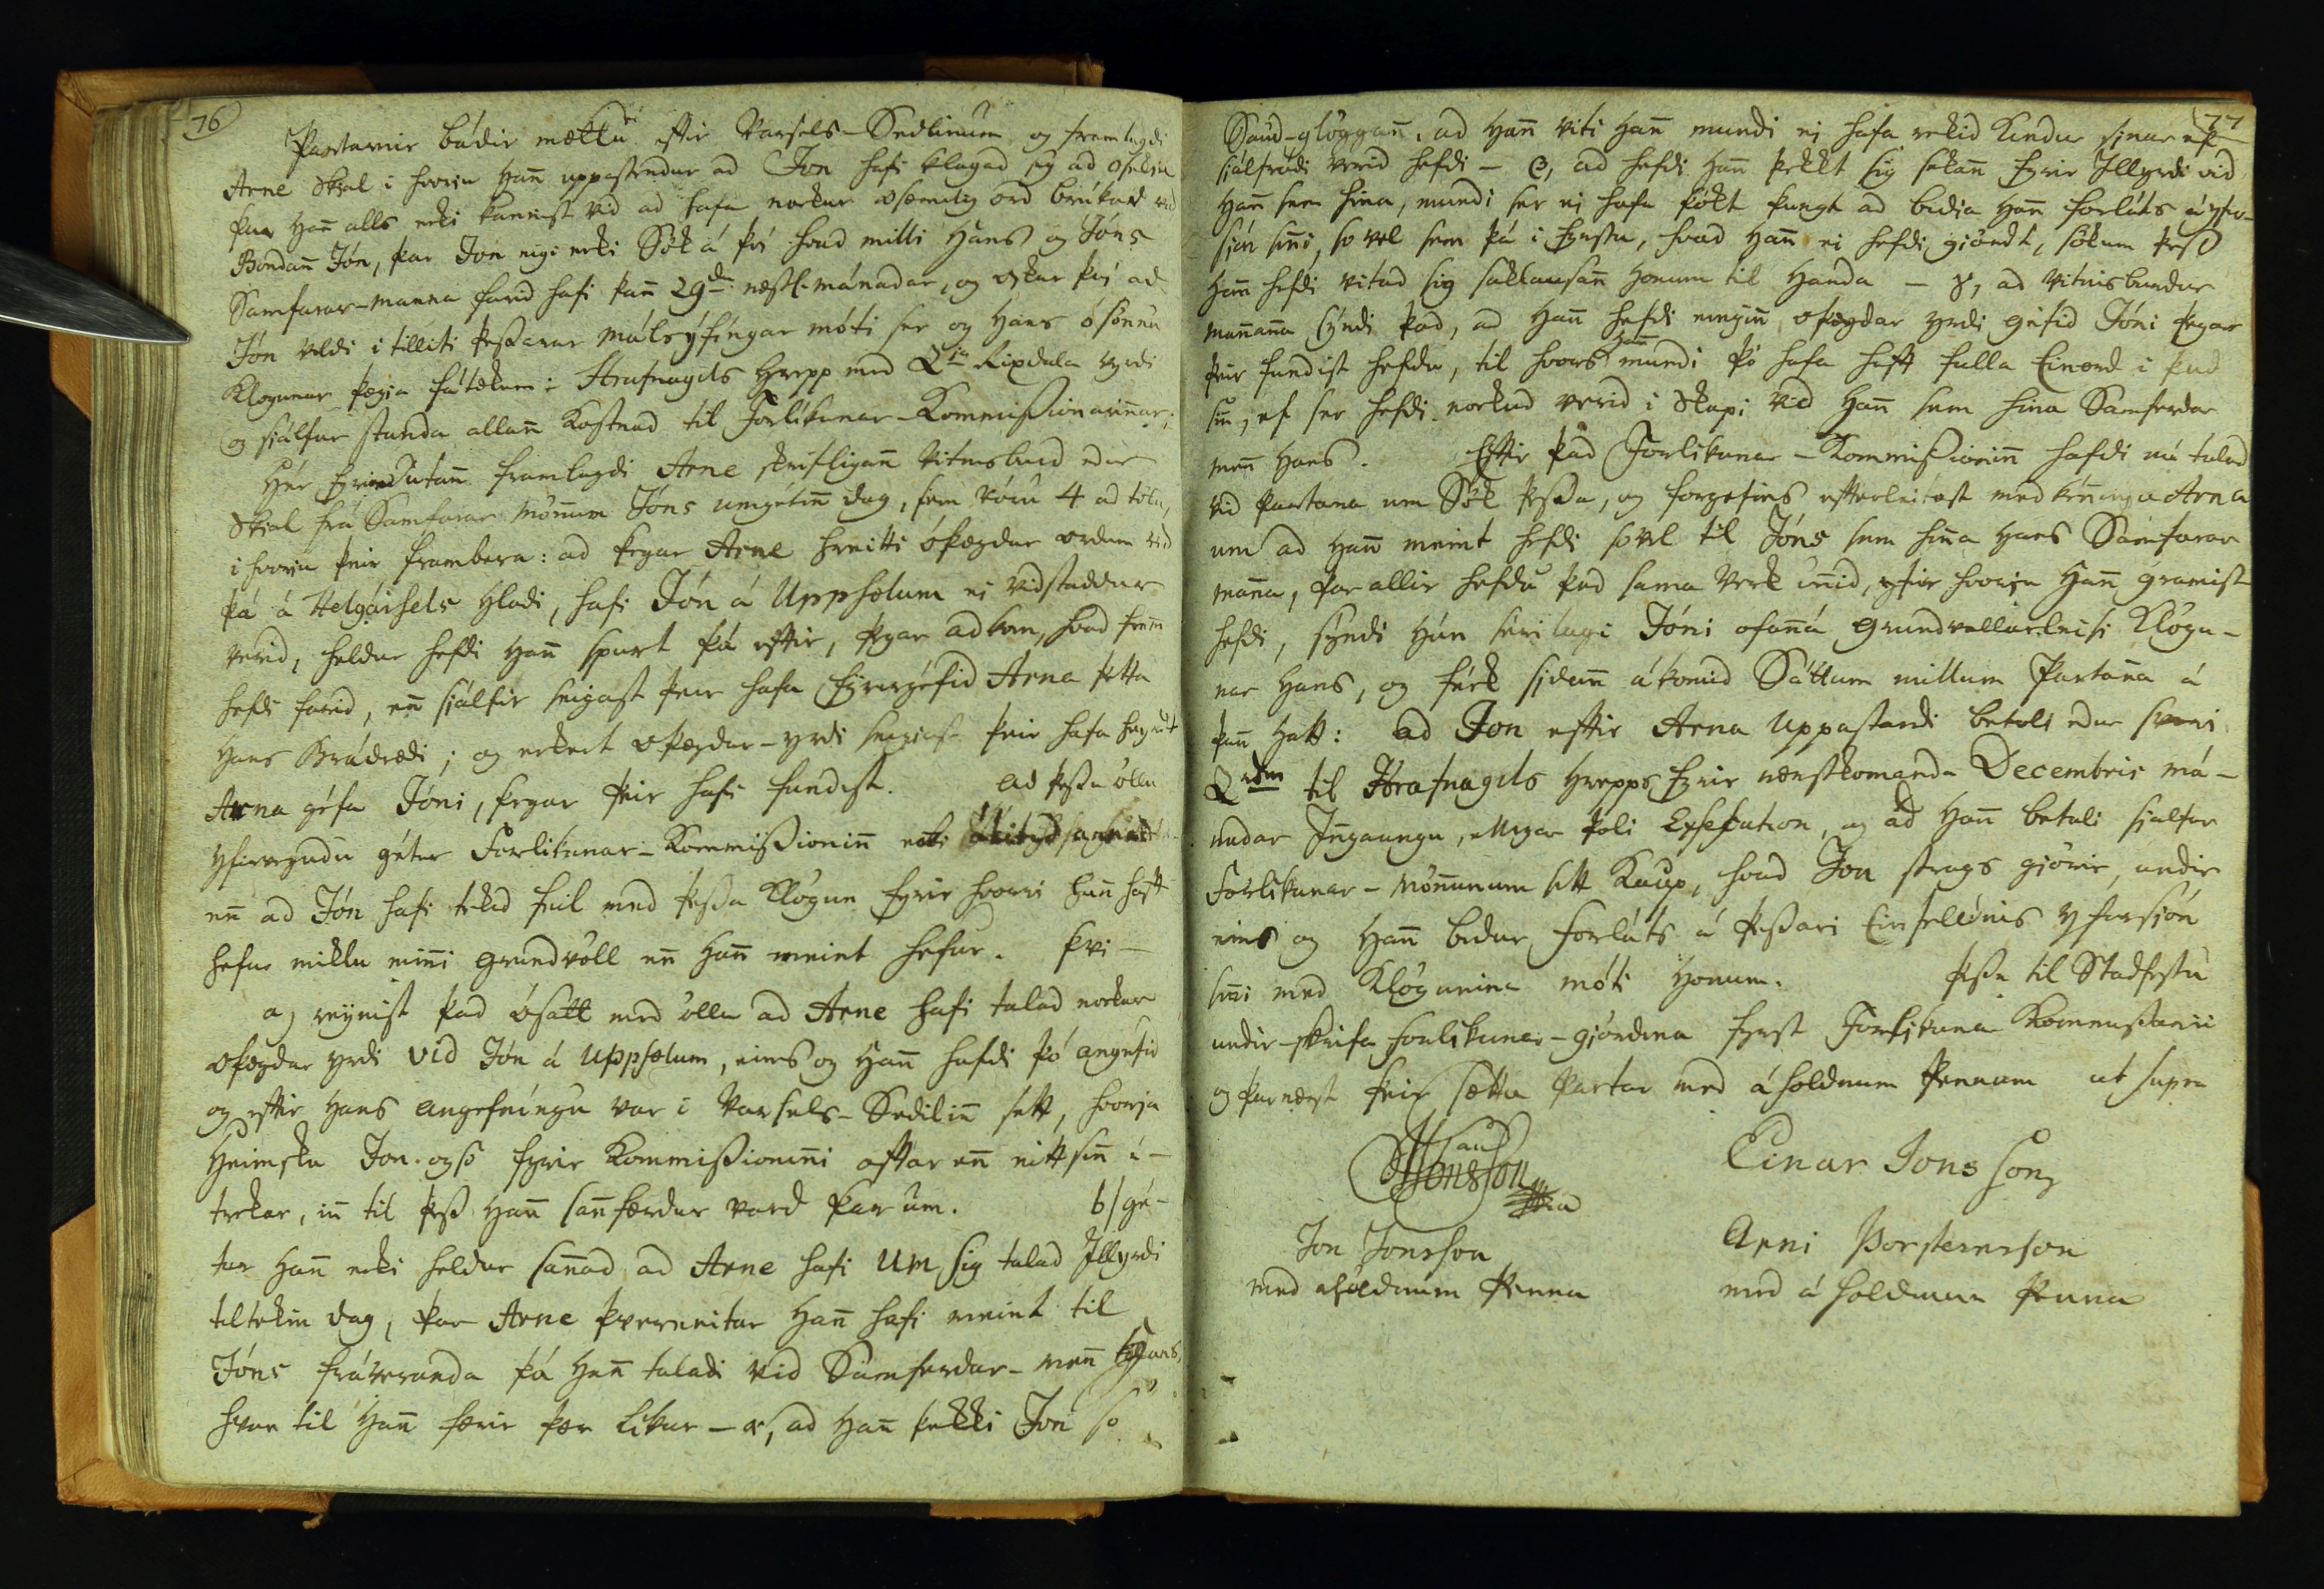 76
Partarnir bádir mættu effter Varsels-Sedlinum og framlagdi
Arne Skial i hvoriu Hann uppastendur ad Jon hafi klagad sig ad osekiu
þar Hann alls ecki kannist vid ad hafa nockur osæmilig ord brúkad vid
Bondann Jón, þar Jon eigi ecki Sök á því hvad milli Hans og Jóns
Samfarar-manna farid hafi þann 29da næstl. mánadar, og oskar því ad
Jón verdi i tilliti þessarar málsýfingar móti ser og Hans ósönnu
Klögunar þægia fátækum i Hrafnagils Hrepp med 2ia Rixdala verdi
og siálfur standa allann Kostnad til Forlikunar-Kommissionarinnar;
Hér fyrir utann framlagdi Arne skrifligann Vitnisburd edur
Skial frá Samfarar mönnum Jóns umgétinn dag, sem vóru 4 ad tölu,
i hvoriu þeir frambera: ad þegar Arne hreitti óþægdar ordum vid
þá á Helgárhels Hladi, hafi Jón á Uppsölum ei vidstaddur
verid, heldur hefdi Hann spurt þá effter, þegar ad kom, hvad fram
hefdi farid, enn siálfir seigast þeir hafa fyrirgéfid Arna þetta
Hans Brádrædi; og eckert óþægdar-yrdi seigiast þeir hafa heyrt
Arna géfa Jóni, þegar þeir hafi fundist. Ad þessu öllu
yfirvegudu gétur Forlikunar-Kommissioninn ecki
enn ad Jón hafi tekid feil med þessa Klögun fyrir hvorri Hann haft
hefur miklu minni grundvöll enn Hann meint hefur. Þvi-
a) reynist þad ósatt med öllu ad Arne hafi talad nockur
óþægdar yrdi vid Jón á Uppsölum, eins og Hann hafdi þó angéfid
og effter Hans angefningu var i Varsels-Sedilinn sett, hvoria
Heimsku Jon ogso fyrir Kommissioninni optar enn eitt sinn i-
trekar, inn til þess Hann sannfærdur vard þar um. b) gé-
tur Hann ecki heldur sannad ad Arne hafi um sig talad Illyrdi
tiltekin dag, þar Arne þverneitar Hann hafi meint til
Jóns fráveranda þá Hann taladi vid Samferdar-menn Hans,
hvar til Hann færir þær Likur - α, ad Hann þekki Jón so
77
Saud-glöggann, ad Hann viti Hann mundi ei hafa rekid Kindur sinar ef
siálfrádi verid hefdi - β, ad hefdi Hann þekkt sig sekann fyrir Illyrdi vid
Hann sem hina, mundi ser ei hafa þókt þungt ad bidia Hann forláts á yfir-
sión sinni, so vel sem þá i fyrstu, hvad Hann ei hefdi giördt, sökum þess
Hann hefdi vitad sig saklausann Honum til Handa - γ, ad Vitnisburdur
mannanna syndi þad, ad Hann hefdi eingin óþægdar yrdi géfid Jóni þegar
þeir fundist hefdu, til hvors Hann mundi þó hafa haft fulla Einurd i þad
sinn, ef ser hefdi nockud verid i Skapi vid Hann sem hina Samferdar
menn Hans. Effter þad Forlikunar-Kommissioninn hafdi nú talad
vid Partana um Sök þessa, og forgefins effterleitast med kenninga Arna
um ad Hann meint hefdi so vel til Jóns sem hina Hans Samfarar
manna, þar allir hefdu þad sama Verk unnid, yfir hvoriu Hann gramist
hefdi, syndi Hún séri lagi Jóni ofanná grundvallarleisi Klögu-
nar Hans, og feck sidann ákomid Sáttum millum Partanna á
þann Hatt: ad Jon effter Arna uppastandi betali edur svari
2rdm til Hrafnagils Hrepps fyrir næstkomanda Decembris má-
nadar Inngaungu, ellegar þoli Exsecution, og ad Hann betali sialfur
Forlikunar-mönnunum sitt Kaup, hvad Jon strags giörir, undir
eins og Hann bidur forláts á þessari Einfeldnis yfirsión
sinni med Klögunina móti Honum. þessu til Stadfestu
undir-skrifa forlikunar-giördina fyrst Forlikunar Kommissarii
og þarnæst þeir sættu Partar med áholdnum Pennum ut supra
Jonsson
Einar Jons Son
Jon Jonsson
med áholdnum Penna
Arni Þorsteinsson
med á holdnum Penna